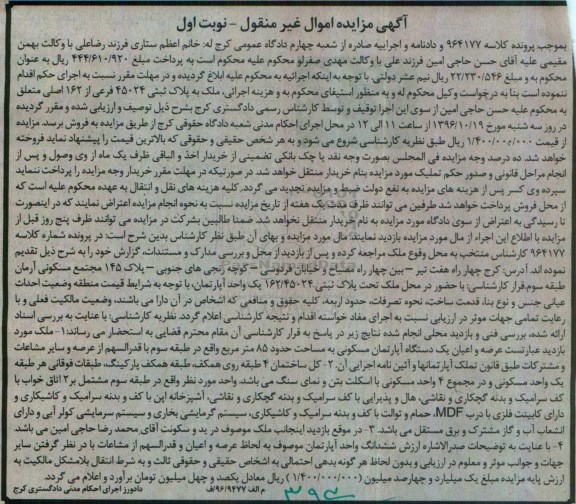 آگهی مزایده اموال غیر منقول - نوبت اول
بموجب پرونده کلاسه ۹۶۴۱۷۷ و دادنامه و اجرائیه صادره از شعبه چهارم دادگاه عمومی کرج له: خانم اعظم ستاری فرزند رضاعلی با وکالت بهمن
مقیمی علیه آقای حسن حاجی امین فرزند علی با وکالت مهدی صفرلو محکوم علیه محکوم است به پرداخت مبلغ ۴۴۴/۶۱۰/۹۲۰ ریال به عنوان
محکوم به و مبلغ ۲۲/۲۳۰/۵۴۶ ریال نیم عشر دولتی. با توجه به اینکه اجرائیه به محکوم علیه ابلاغ گردیده و در مهلت مقرر نسبت به اجرای حکم اقدام
ننموده است بنا به درخواست وکیل محکوم له و به منظور استیفای محکوم به و هزینه اجرائی، ملک به پلاک ثبتی ۴۵۰۲۴ فرعی از ۱۶۲ اصلی متعلق
به محکوم علیه حسن حاجی امین از سوی این اجرا توقیف و توسط کارشناس رسمی دادگستری کرج بشرح ذیل توصیف و ارزیابی شده و مقرر گردیده
در روز سه شنبه مورخ ۱۳۹۶/۱۰/۱۹ از ساعت ۱۱ الی ۱۲ در محل اجرای احکام مدنی شعبه دادگاه حقوقی کرج از طریق مزایده به فروش برسد. مزایده
از قیمت ۱/۴۰۰/۰۰۰/۰۰۰ ریال طبق نظریه کارشناسی شروع می شود و به هر شخص حقیقی و حقوقی که بالاترین قیمت را پیشنهاد نماید فروخته
خواهد شد. ده درصد وجه مزایده فی المجلس بصورت وجه نقد یا چک بانکی تضمینی از خریدار اخذ و الباقی ظرف یک ماه از وی وصول و پس از
انجام مراحل قانونی و صدور حکم تملیک مورد مزایده بنام خریدار منتقل خواهد شد. در صورتیکه در مهلت مقرر خریدار وجه مزایده را پرداخت ننماید
سپرده وی کسر پس از هزینه های مزایده به نفع دولت ضبط و مزایده تجدید می گردد. کلیه هزینه های نقل و انتقال به عهده محکوم علیه است که
از محل فروش پرداخت خواهد شد طرفین می توانند ظرف مدت یک هفته از تاریخ مزایده نسبت به نحوه انجام مزایده اعتراض نمایند که در اینصورت
تا رسیدگی به اعتراض از سوی دادگاه مورد مزایده به نام خریدار منتقل نخواهد شد. ضمنا طالبین بشرکت در مزایده می توانند ظرف پنج روز قبل از
مزایده با اطلاع این اجراء از مال مورد مزایده بازدید نمایند. مال مورد مزایده و بهای آن طبق نظر کارشناس بدین شرح است: در پرونده شماره کلاسه
۹۶۴۱۷۷ کارشناس منتخب به محل وقوع ملک مراجعه کرده و پس از بازدید از محل و بررسی مدارک و مستندات، گزارش خود را به شرح ذیل تقدیم
نموده اند. آدرس: کرج چهار راه هفت تیر - بین چهار راه مصباح و خیابان فردوسی - کوچه رنجی های جنوبی - پلاک ۱۴۵ مجتمع مسکونی آرمان
طبقه سوم.قرار کارشناسی: با حضور در محل ملک تحت پلاک ثبتی ۱۶۲/۴۵۰۲۴ یک واحد آپارتمان، با توجه به شرایط قیمت منطقه وضعیت احداث
عیانی جنس و نوع بنا، قدمت ساخت، نحوه تصرفات، حدود اربعه، کلیه حقوق و منافعی که اشخاص در آن دارا می باشند، وضعیت مالکیت فعلی و با
رعایت تمامی جهات موثر در ارزیابی نسبت به اجرای مفاد خواسته اقدام و نتیجه کارشناسی اعلام گردد. نظریه کارشناسی: با عنایت به بررسی اسناد
ارائه شده، بررسی فنی و بازدید محلی انجام شده نتایج زیر در پاسخ به قرار کارشناسی آن مقام محترم قضایی به استحضار می رساند: ۱- ملک مورد
بازدید عبارتست عرصه و اعیان یک دستگاه آپارتمان مسکونی به مساحت حدود ۸۵ متر مربع واقع در طبقه سوم با قدرالسهم از عرصه و سایر مشاعات
و مشترکات طبق قانون تملک آپارتمانها و آئین نامه اجرایی آن. ۲- کل ساختمان ۴ طبقه روی همکف، طبقه همکف پارکینگ، طبقات فوقانی هر طبقه
یک واحد مسکونی و در مجموع ۴ واحد مسکونی با اسکلت بتن و نمای سنگ می باشد. واحد مورد نظر واقع در طبقه سوم مشتمل بر ۲ اتاق خواب با
کف سرامیک و بدنه گچکاری و نقاشی، هال و پذیرایی با کف سرامیک و بدنه گچکاری و نقاشی، آشپزخانه اپن با کف و بدنه سرامیک و کاشیکاری و
دارای کابینت فلزی با درب MDF، حمام و توالت با کف و بدنه سرامیک و کاشیکاری، سیستم گرمایشی بخاری و سیستم سرمایشی کولر آبی و دارای
انشعاب آب و گاز مشترک و برق مستقل می باشد. ۳- در موقع بازدید اینجانب ملک موصوف در ید و سکونت آقای محمد رضا حاجی امین می باشد
۴- با عنایت به توضیحات صدرالاشاره ارزش ششدانگ واحد آپارتمان موصوف به لحاظ عرصه و اعیان و قدرالسهم از مشاعات با در نظر گرفتن سایر
جهات و جوانب موثر و معلوم در ارزیابی و بدون لحاظ هر گونه بدهی احتمالی به اشخاص حقیقی و حقوقی ثالث و به شرط انتقال بلامشکل مالکیت به
ارزش پایه مزایده مبلغ یک میلیارد و چهارصد میلیون (۱/۴۰۰/۰۰۰/۰۰۰) ریال معادل یکصد و چهل میلیون تومان برآورد و اعلام می گردد.
م الف ۹۶/۹۴۷۷/ف دادورز اجرای احکام مدنی دادگستری کرج